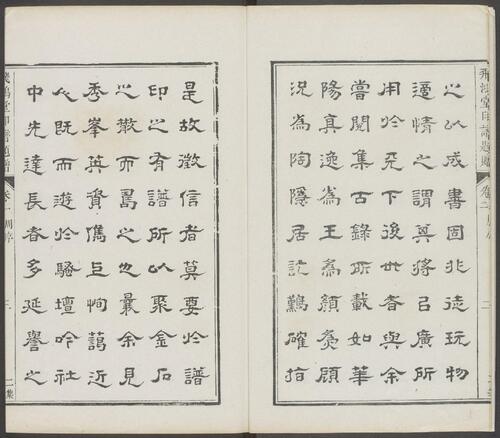 飛鴻堂印譜
周序
二
二集
之以成書固非徒玩物
適情之謂冀將㠯廣所
用於天下後世者與余
嘗閱集古錄所載如華
陽真逸為王為顏顧
況為陶隱居訖難確指
是故徵信者莫要於譜
印之有譜所以聚金石
之散而之也曩余見
秀峯英資儁恂藹近
人既而遊於騷壇吟社
中先達長者多延譽之
飛鴻堂印譜
周序
三
二集